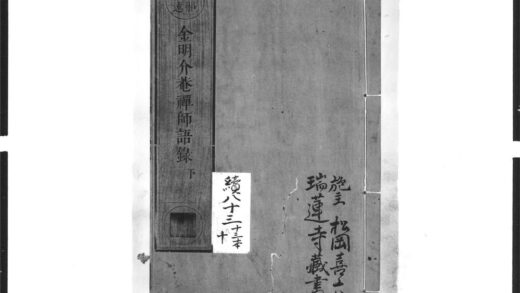 金明介菴禪師語錄
下
續八十三
十三本
十
施主 松岡喜
瑞蓮寺藏書